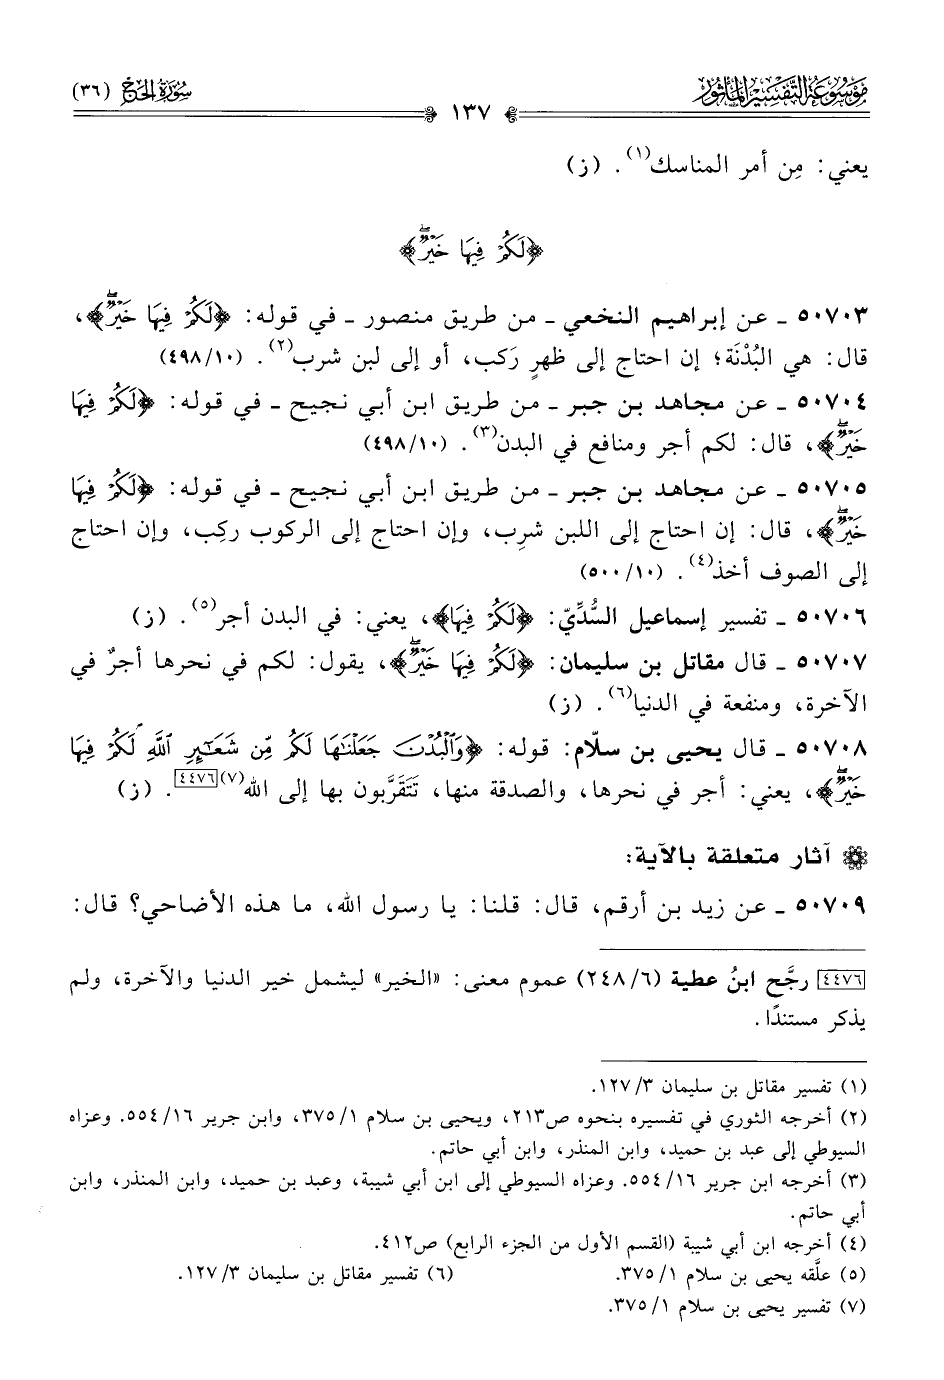 مَوْسُوعَةُ التَّفْسِيرِ المَأْثُور
١٣٧
سُورَةُ الحَجِّ (٣٦)
يعني: مِن أمر المناسك(١). (ز)
﴿لَكُمْ فِيهَا خَيْرٌۖ﴾
٥٠٧٠٣ ـ عن إبراهيم النخعي ـ من طريق منصور ـ في قوله: ﴿لَكُمْ فِيهَا خَيْرٌۖ﴾،
قال: هي البُدْنَة؛ إن احتاج إلى ظهرٍ رَكب، أو إلى لبن شرب(٢). (٤٩٨/١٠)
٥٠٧٠٤ ـ عن مجاهد بن جبر ـ من طريق ابن أبي نجيح ـ في قوله: ﴿لَكُمْ فِيهَا
خَيْرٌۖ﴾، قال: لكم أجر ومنافع في البدن(٣). (٤٩٨/١٠)
٥٠٧٠٥ ـ عن مجاهد بن جبر ـ من طريق ابن أبي نجيح ـ في قوله: ﴿لَكُمْ فِيهَا
خَيْرٌۖ﴾، قال: إن احتاج إلى اللبن شرِب، وإن احتاج إلى الركوب ركِب، وإن احتاج
إلى الصوف أخذ(٤). (٥٠٠/١٠)
٥٠٧٠٦ ـ تفسير إسماعيل السُّدِّيّ: ﴿لَكُمْ فِيهَا﴾، يعني: في البدن أجر(٥). (ز)
٥٠٧٠٧ ـ قال مقاتل بن سليمان: ﴿لَكُمْ فِيهَا خَيْرٌۖ﴾، يقول: لكم في نحرها أجرٌ في
الآخرة، ومنفعة في الدنيا(٦). (ز)
٥٠٧٠٨ ـ قال يحيى بن سلّام: قوله: ﴿وَٱلْبُدْنَ جَعَلْنَٰهَا لَكُم مِّن شَعَٰٓئِرِ ٱللَّهِ لَكُمْ فِيهَا
خَيْرٌۖ﴾، يعني: أجر في نحرها، والصدقة منها، تَتَقَرَّبون بها إلى الله(٧)[٤٤٧٦]. (ز)
آثار متعلقة بالآية:
٥٠٧٠٩ ـ عن زيد بن أرقم، قال: قلنا: يا رسول الله، ما هذه الأضاحي؟ قال:
[٤٤٧٦] رجَّح ابنُ عطية (٢٤٨/٦) عموم معنى: «الخير» ليشمل خير الدنيا والآخرة، ولم
يذكر مستندًا.
(١) تفسير مقاتل بن سليمان ١٢٧/٣.
(٢) أخرجه الثوري في تفسيره بنحوه ص٢١٣، ويحيى بن سلام ٣٧٥/١، وابن جرير ٥٥٤/١٦. وعزاه
السيوطي إلى عبد بن حميد، وابن المنذر، وابن أبي حاتم.
(٣) أخرجه ابن جرير ٥٥٤/١٦. وعزاه السيوطي إلى ابن أبي شيبة، وعبد بن حميد، وابن المنذر، وابن
أبي حاتم.
(٤) أخرجه ابن أبي شيبة (القسم الأول من الجزء الرابع) ص٤١٢.
(٥) علَّقه يحيى بن سلام ٣٧٥/١. (٦) تفسير مقاتل بن سليمان ١٢٧/٣.
(٧) تفسير يحيى بن سلام ٣٧٥/١.